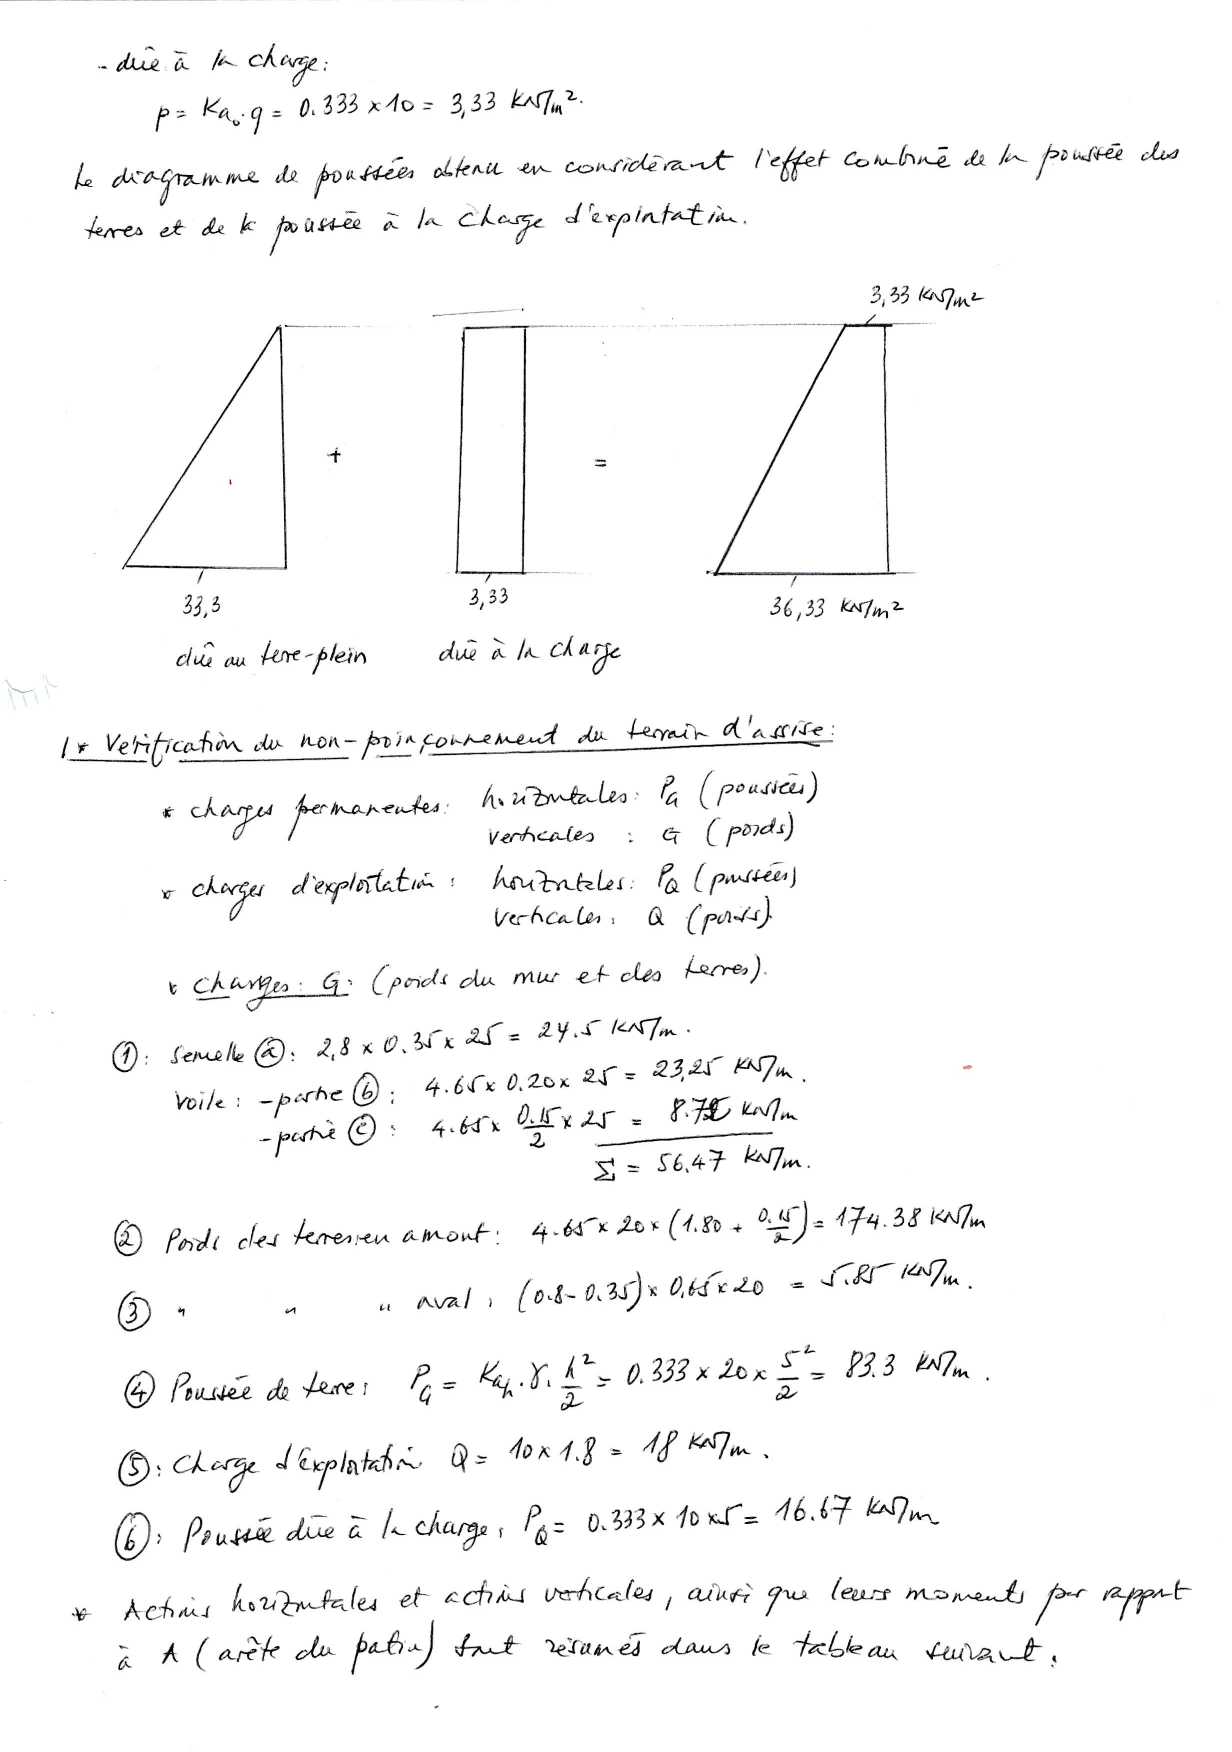 - dûe à la charge:
p = Ka₀.q = 0.333 x 10 = 3,33 KN/m².
Le diagramme de poussées obtenu en considérant l'effet combiné de la poussée des
terres et de la poussée à la charge d'exploitation.
3,33 KN/m²
+ =
33,3 3,33 36,33 KN/m²
dûe au terre-plein dûe à la charge
1* Vérification du non-poinçonnement du terrain d'assise:
* charges permanentes: horizontales: PG (poussées)
verticales : G (poids)
* charges d'exploitation: horizontales: PQ (poussées)
verticales: Q (poids).
* Charges: G: (poids du mur et des terres).
①: Semelle ⓐ: 2,8 x 0.35 x 25 = 24.5 KN/m.
Voile: - partie ⓑ: 4.65 x 0.20 x 25 = 23,25 KN/m.
- partie ⓒ: 4.65 x 0.15/2 x 25 = 8.72 KN/m
Σ = 56.47 KN/m.
② Poids des terres en amont: 4.65 x 20 x (1.80 + 0.15/2) = 174.38 KN/m
③ " " " aval: (0.8 - 0.35) x 0,65 x 20 = 5.85 KN/m.
④ Poussée de terre: PG = Kah.γ.h²/2 = 0.333 x 20 x 5²/2 = 83.3 KN/m.
⑤: Charge d'exploitation Q = 10 x 1.8 = 18 KN/m.
⑥: Poussée dûe à la charge: PQ = 0.333 x 10 x 5 = 16.67 KN/m
* Actions horizontales et actions verticales, ainsi que leurs moments par rapport
à A (arête du patin) sont résumés dans le tableau suivant.